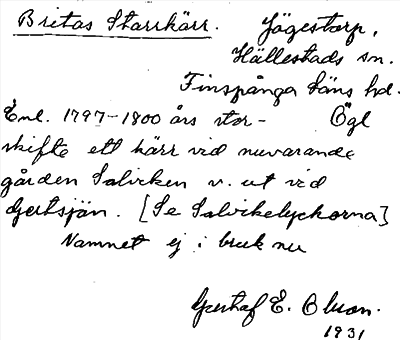 Britas Starrkärr. Jägestorp,
Hällestads sn.
Finspånga läns hd.
Enl. 1797-1800 års stor- Ögl
skifte ett kärr vid nuvarande
gården Salviken v. ut vid
Gertsjön. [Se Salvikelyckorna]
Namnet ej i bruk nu
Gustaf E. Olson.
1931